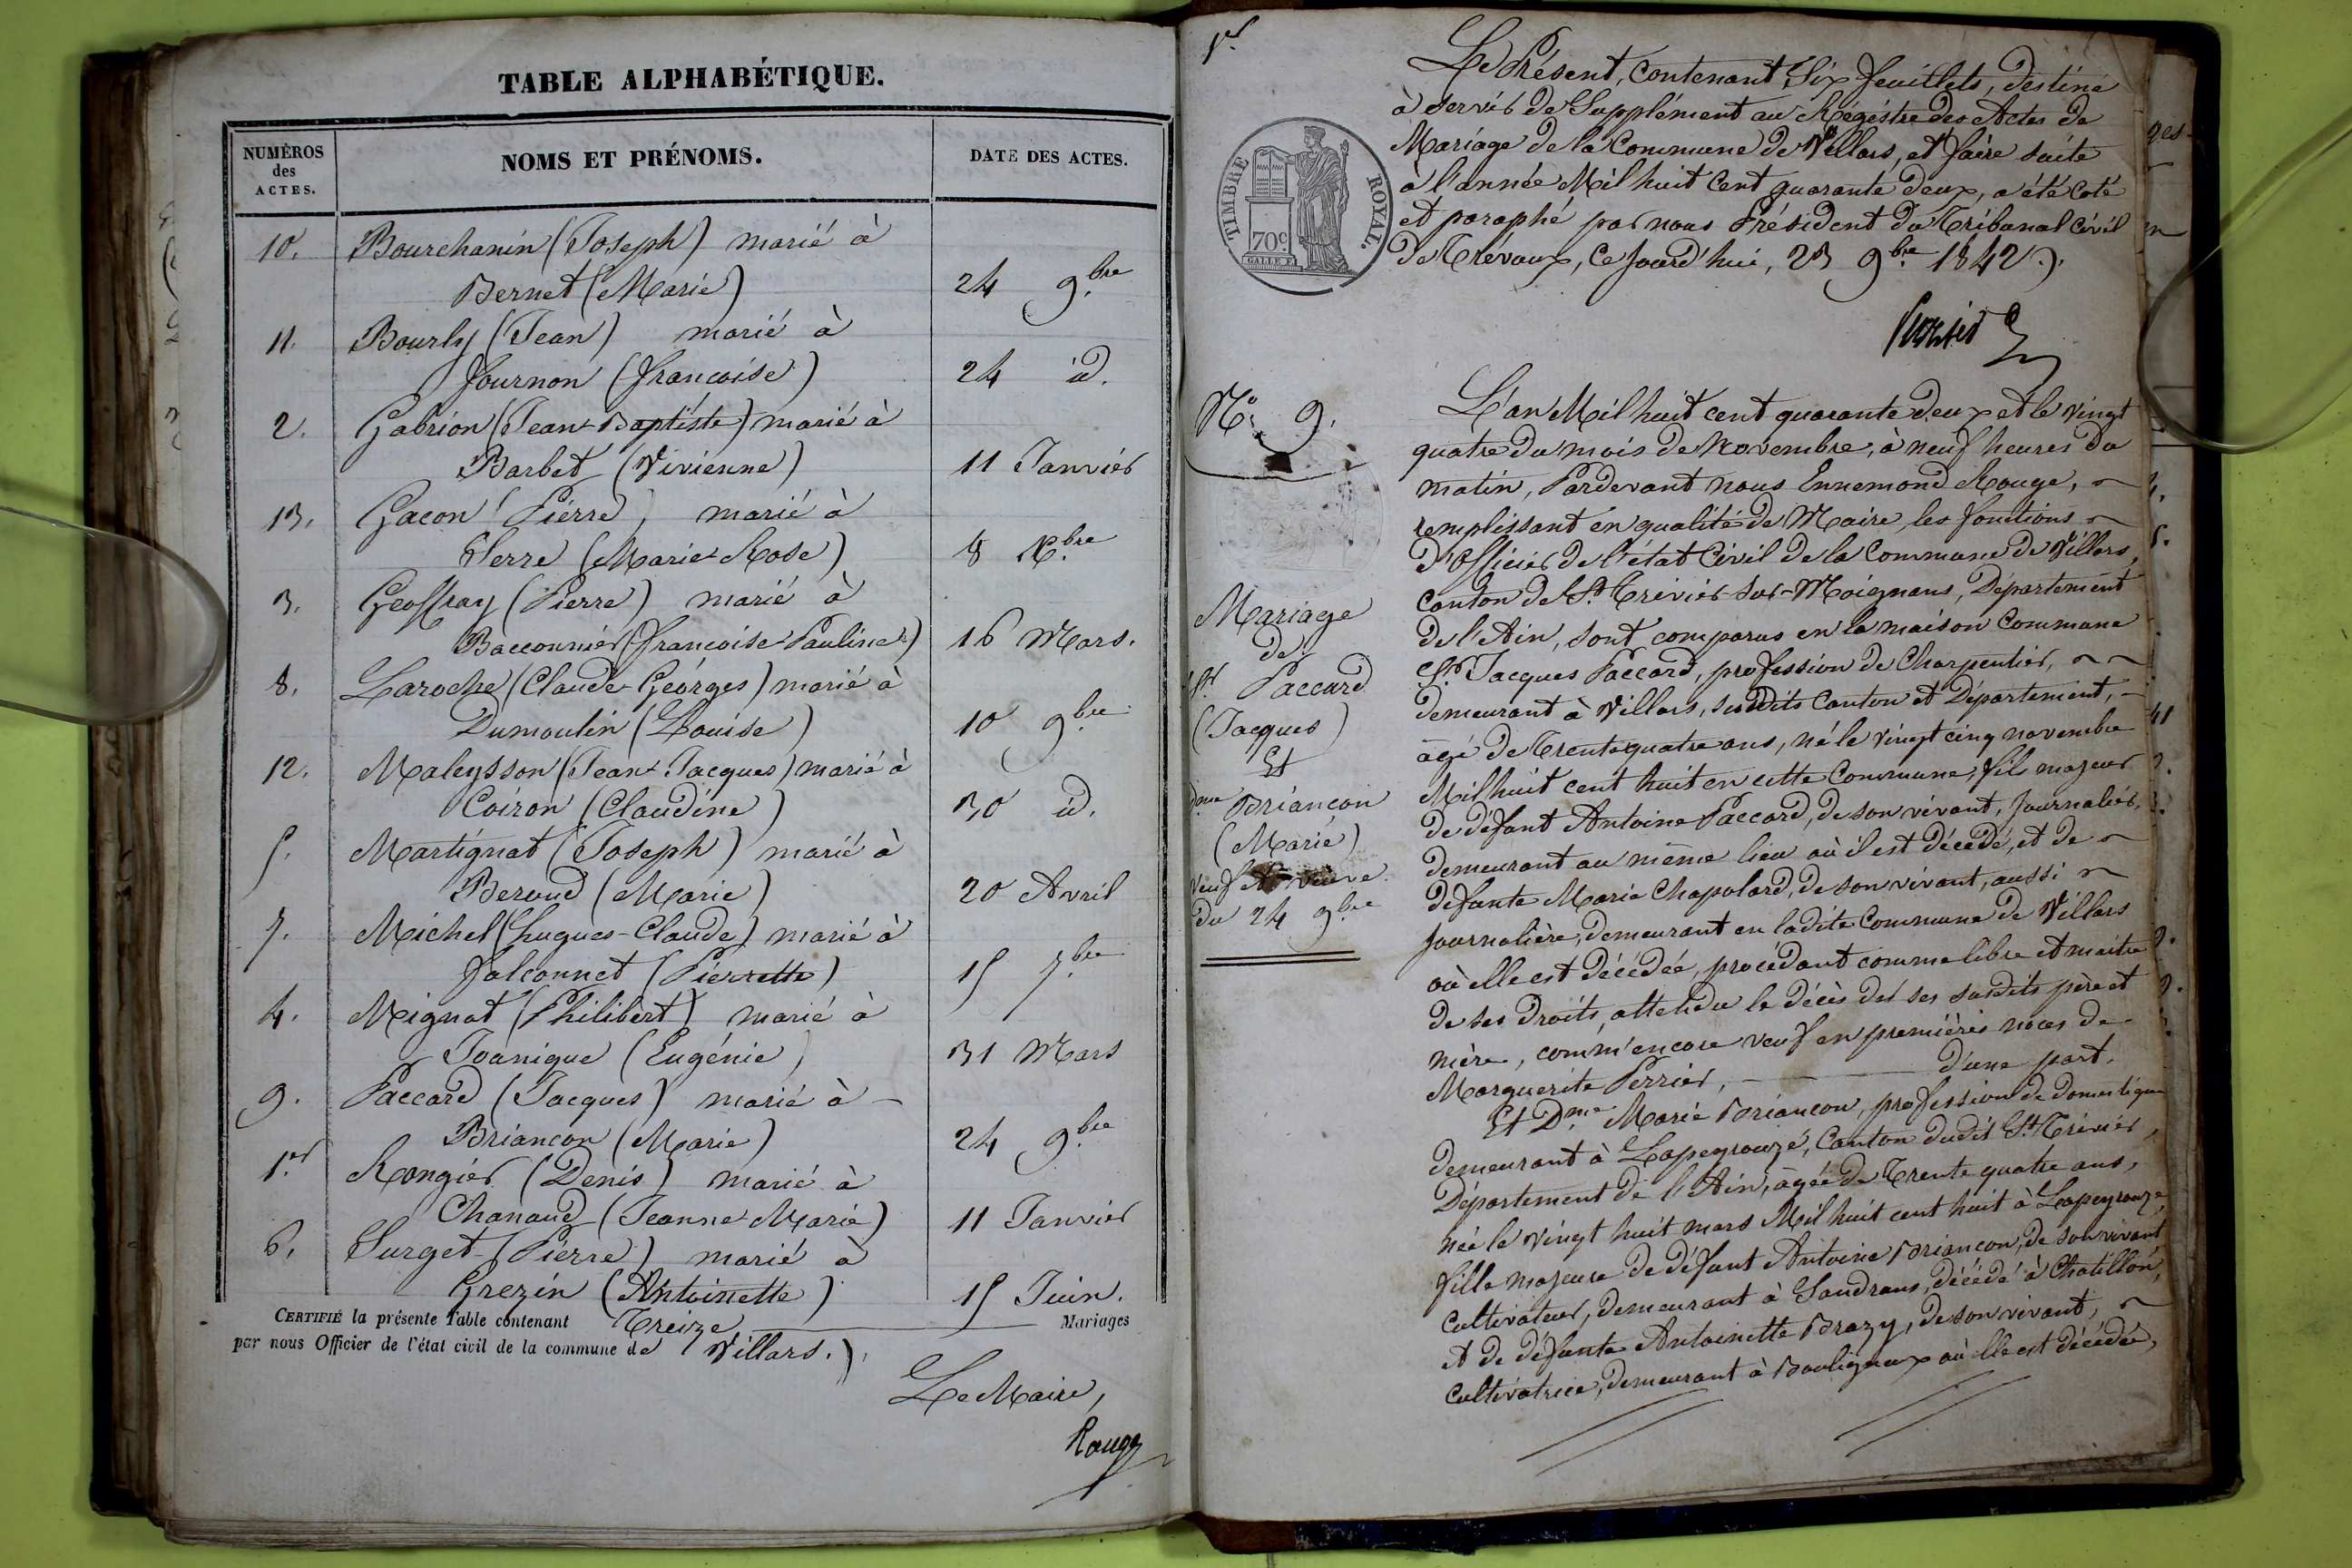 TABLE ALPHABÉTIQUE.
NUMÉROS des ACTES.
NOMS ET PRÉNOMS.
DATE DES ACTES.
10. Bourchanin (Joseph) marié à
Bernet (Marie) 24 9.bre
11. Bourly (Jean) marié à
Fournon (françoise) 24 id.
2. Gabrion (Jean-Baptiste) marié à
Barbet (Vivienne) 11 Janvier
13. Gacon (Pierre) marié à
Serre (Marie-Rose) 8 X.bre
3. Geoffray (Pierre) marié à
Bacconnier (françoise-Pauline) 16 Mars.
8. Laroche (Claude-Georges) marié à
Dumoulin (Louise) 10 9.bre
12. Maleysson (Jean-Jacques) marié à
Coiron (Claudine) 30 id.
5. Martignat (Joseph) marié à
Beroud (Marie) 20 Avril
7. Michel (hugues-Claude) marié à
Falconnet (Pierrette) 15 7.bre
4. Mignat (Philibert) marié à
Joanique (Eugénie) 31 Mars
9. Paccard (Jacques) marié à
Briancon (Marie) 24 9.bre
1.er Rongier (Denis) marié à
Chanaud (Jeanne Marie) 11 Janvier
6. Surget (Pierre) marié à
Grezin (Antoinette) 15 Juin.
CERTIFIÉ la présente Table contenant Treize Mariages
par nous Officier de l'état civil de la commune de Villars.
Le Maire,
Rouge
1.er
Le Présent, contenant Six feuillets, destiné
à servir de Supplément au Régistre des Actes de
Mariage de la Commune de Villars, et faire suite
à l'année Mil huit Cent quarante deux, a été coté
et paraphé par nous Président du Tribunal Civil
de Trévoux, ce jourd'hui, 23 9.bre 1842.
TIMBRE ROYAL.
70c
N.o 9.
Mariage
de
S.r Paccard
(Jacques)
Et
D.me Briancon
(Marie)
veuf et veuve
du 24 9.bre
L'an Mil huit cent quarante deux et le vingt
quatre du mois de Novembre, à neuf heures du
matin, Pardevant nous Ennemond Rouge,
remplissant en qualité de Maire, les fonctions
d'officier de l'état Civil de la Commune de Villars,
canton de S.t Trivier-sur-Moignans, Département
de l'Ain, sont comparus en la maison Commune
S.r Jacques Paccard, profession de Charpentier,
demeurant à Villars, susdits Canton et Département,
âgé de Trente quatre ans, né le vingt cinq novembre
Mil huit cent huit en cette Commune, fils majeur
de défunt Antoine Paccard, de son vivant, Journalier,
demeurant au même lieu où il est décédé, et de
défunte Marie Chapolard, de son vivant, aussi
Journalière, demeurant en ladite Commune de Villars
où elle est décédée, procédant comme libre et maitre
de ses Droits, attendu le décès des ses susdits père et
mère, comm'encore veuf en premières noces de
Marguerite Perrier, d'une part.
Et D.me Marie Briancon, profession de Domestique
demeurant à Lapeyrouze, Canton dudit S.t Trivier,
Département de l'Ain, âgée de Trente quatre ans,
née le vingt huit mars Mil huit cent huit à Lapeyrouze,
fille majeure de défunt Antoine Briancon, de son vivant
Cultivateur, demeurant à Sandrans, décédé à Chatillon,
et de défunte Antoinette Brazy, de son vivant,
cultivatrice, demeurant à Bouligneux où elle est décédée,